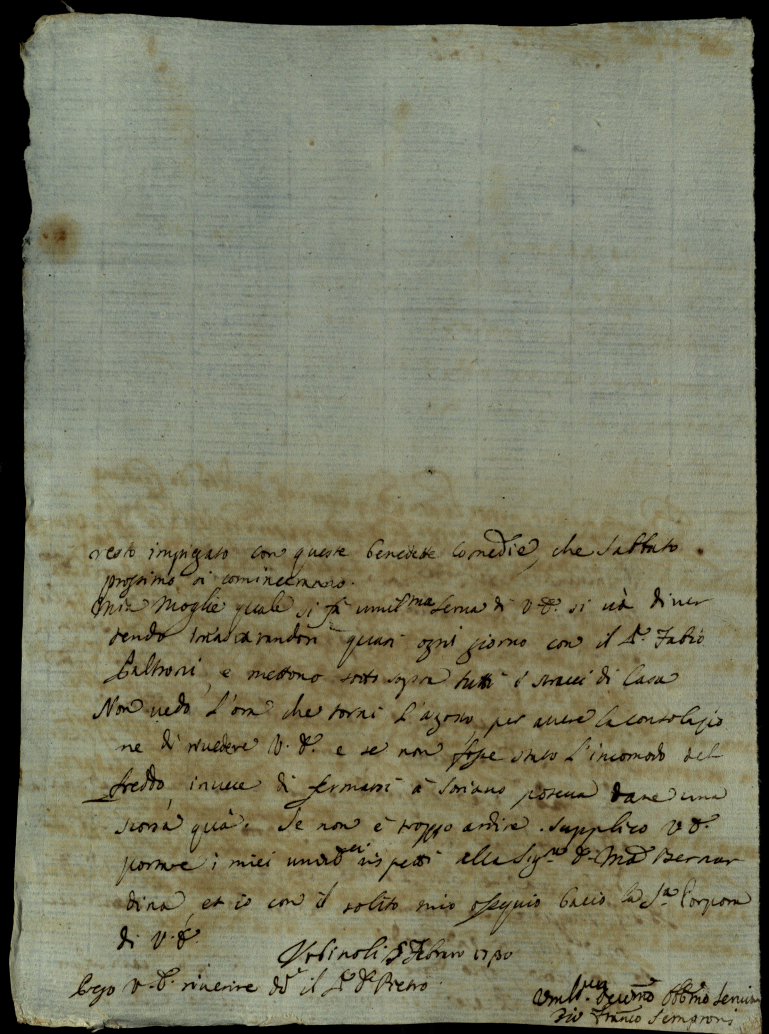 resto impiegato con queste benedette Comedie, che Sabbato
prossimo si cominceranno.
Mia Moglie quale si fà umil.ma serva di V.E. si và diver
tendo quasi ogni giorno con il S.r Fabio
e mettono sotto sopra tutti i stracci di Casa
Non vedo l'ora che torni l'agosto per avere la consolazio
ne di rivedere V.E. e se non fosse stato l'incomodo del
freddo invece di fermarsi à Soriano poteva dare una
scorsa quà. Se non è troppo ardire supplico V.E.
portare i miei rispetti alla Sig.ra D. Mad. Bernar
dina, et io con il solito mio ossequio bacio la S.ra
di V.E.
5 Febraro 1730
V.E. riverire il S.r D. Pietro.
Umil.mo Devot.mo Obl.mo Servi
Franco Semproni